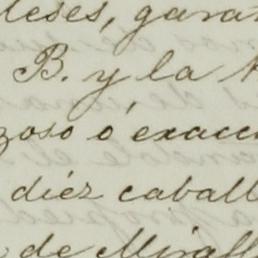 leses, gara
B. y la
zoso ó exacc
diéz caball
de Miraf